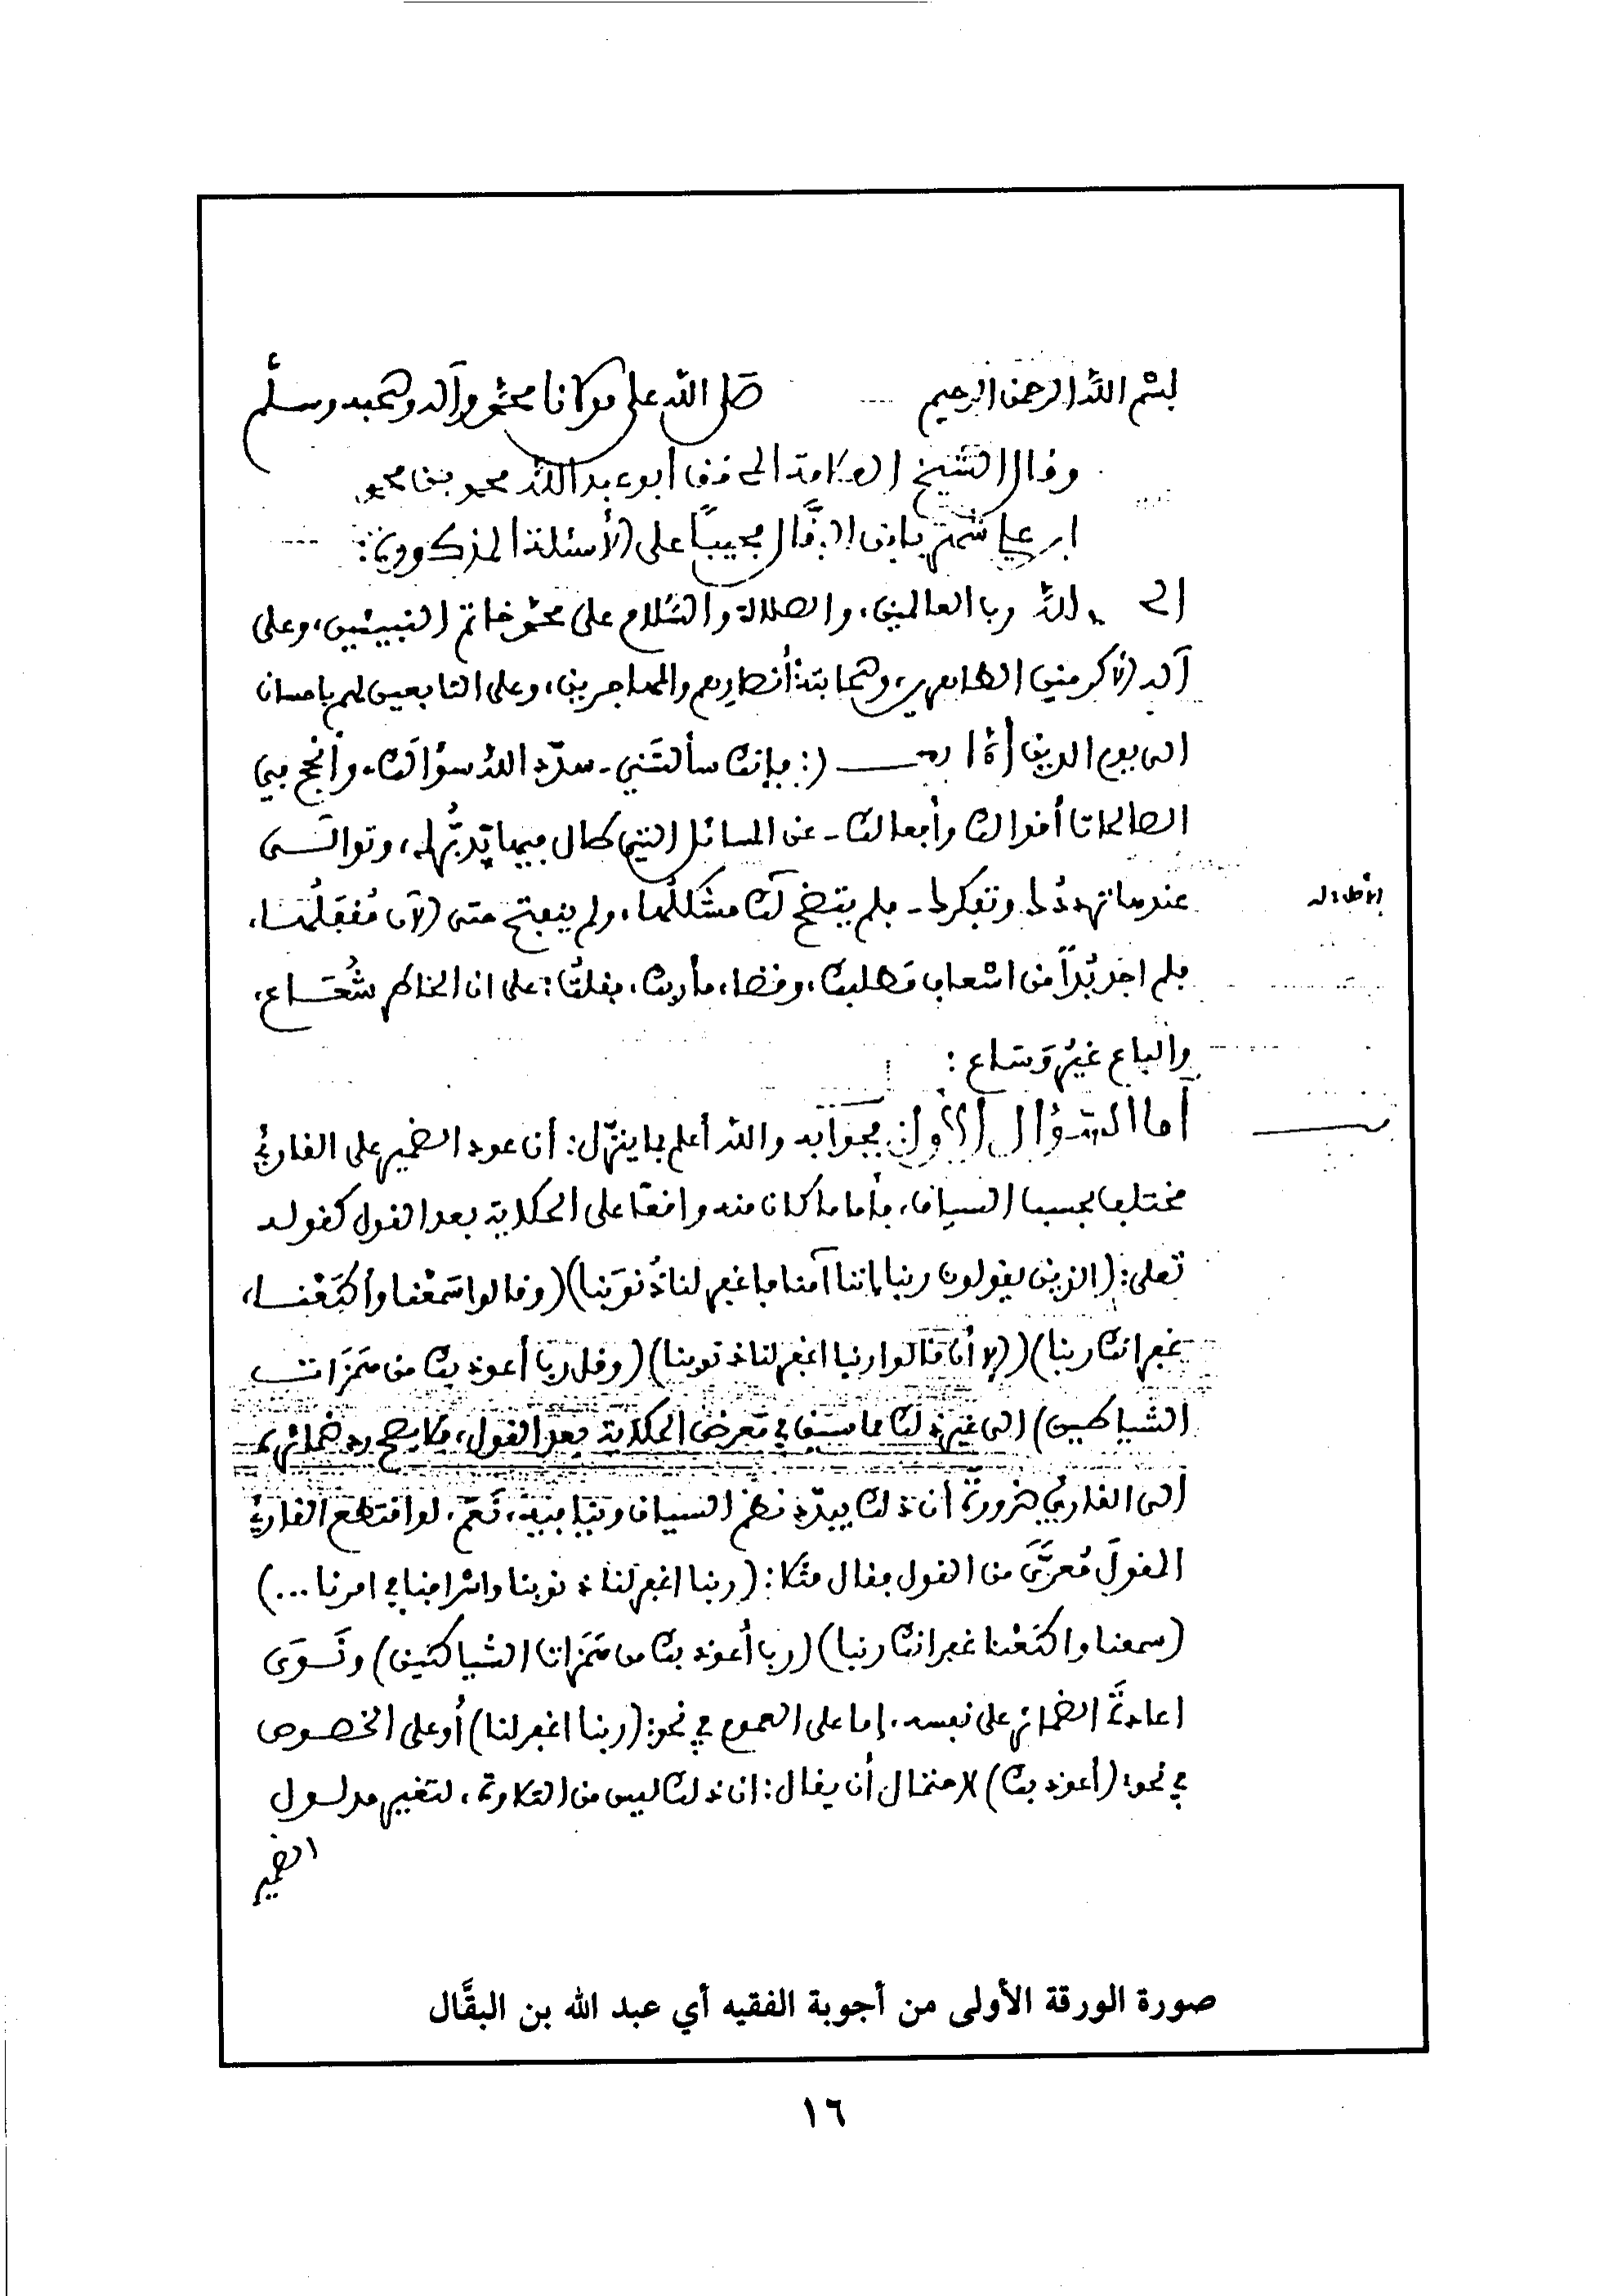 بسم الله الرحمن الرحيم صلى الله على مولانا محمد وآله وصحبه وسلم
وقال الشيخ العلامة المحقق أبو عبد الله محمد بن محمد
ابن علي شهر بابن البقَّال مجيباً على الأسئلة المذكورة:
الحمد لله رب العالمين، والصلاة والسلام على محمد خاتم النبيئين، وعلى
آله الأكرمين الطاهرين، وصحابته أنصارهم والمهاجرين، وعلى التابعين لهم بإحسان
الى يوم الدين فإنك سألتَني - سدّد الله سؤالك، وأنجح في
الصالحات أقوالك وأفعالك - عن المسائل التي طال فيها تدبُّرك، وتوالى
عندها تردُّدك وتفكرك - فلم يتضح لك مشكلُها، ولم ينفتح حتى الآن مُقفَلُها،
فلم اجد بُدّاً من اسعاف مطلبك، وقضاء مأربك، فقلت: على ان الخاطر شُعَاع،
والباع غيرُ وَسَاع:
أما السؤال الأول: فجوابه والله أعلم بما ينزّل: أن عود الضمير على القارئ
مختلف بحسب السياق، فأما ما كان منه واقعا على الحكاية بعد القول كقوله
تعلى: (الذين يقولون ربنا إننا آمنا فاغفر لنا ذُنوبَنا) (وقالوا سَمعْنا وأطَعْنا،
غفرانك ربنا) (إلا أن قالوا ربنا اغفر لنا ذنوبنا) (وقل رب أعوذ بك من همَزَات
الشياطين) الى غير ذلك مما سيق في مَعرض الحكاية بعد القول، فلا يصح رد ضمائره
الى القارئ ضرورةَ أن ذلك يبدّد نظم السياق ونيا فيه، نَعَم، لو اقتطع القارئ
المقولَ مُعرًّى من القول فقال مثلا: (ربنا اغفر لنا ذنوبنا واسرافنا في امرنا...)
(سمعنا واطَعْنا غفرانك ربنا) (رب أعوذ بك من همَزات الشياطين) ونَوَى
اعادةَ الضمائر على نفسه، إما على العموم في نحو: (ربنا اغفر لنا) أو على الخصوص
في نحو: (أعوذ بك) لاحتمال أن يقال: ان ذلك ليس من التلاوة، لتغيير مدلول
الضمير
صورة الورقة الأولى من أجوبة الفقيه أي عبد الله بن البقَّال
١٦